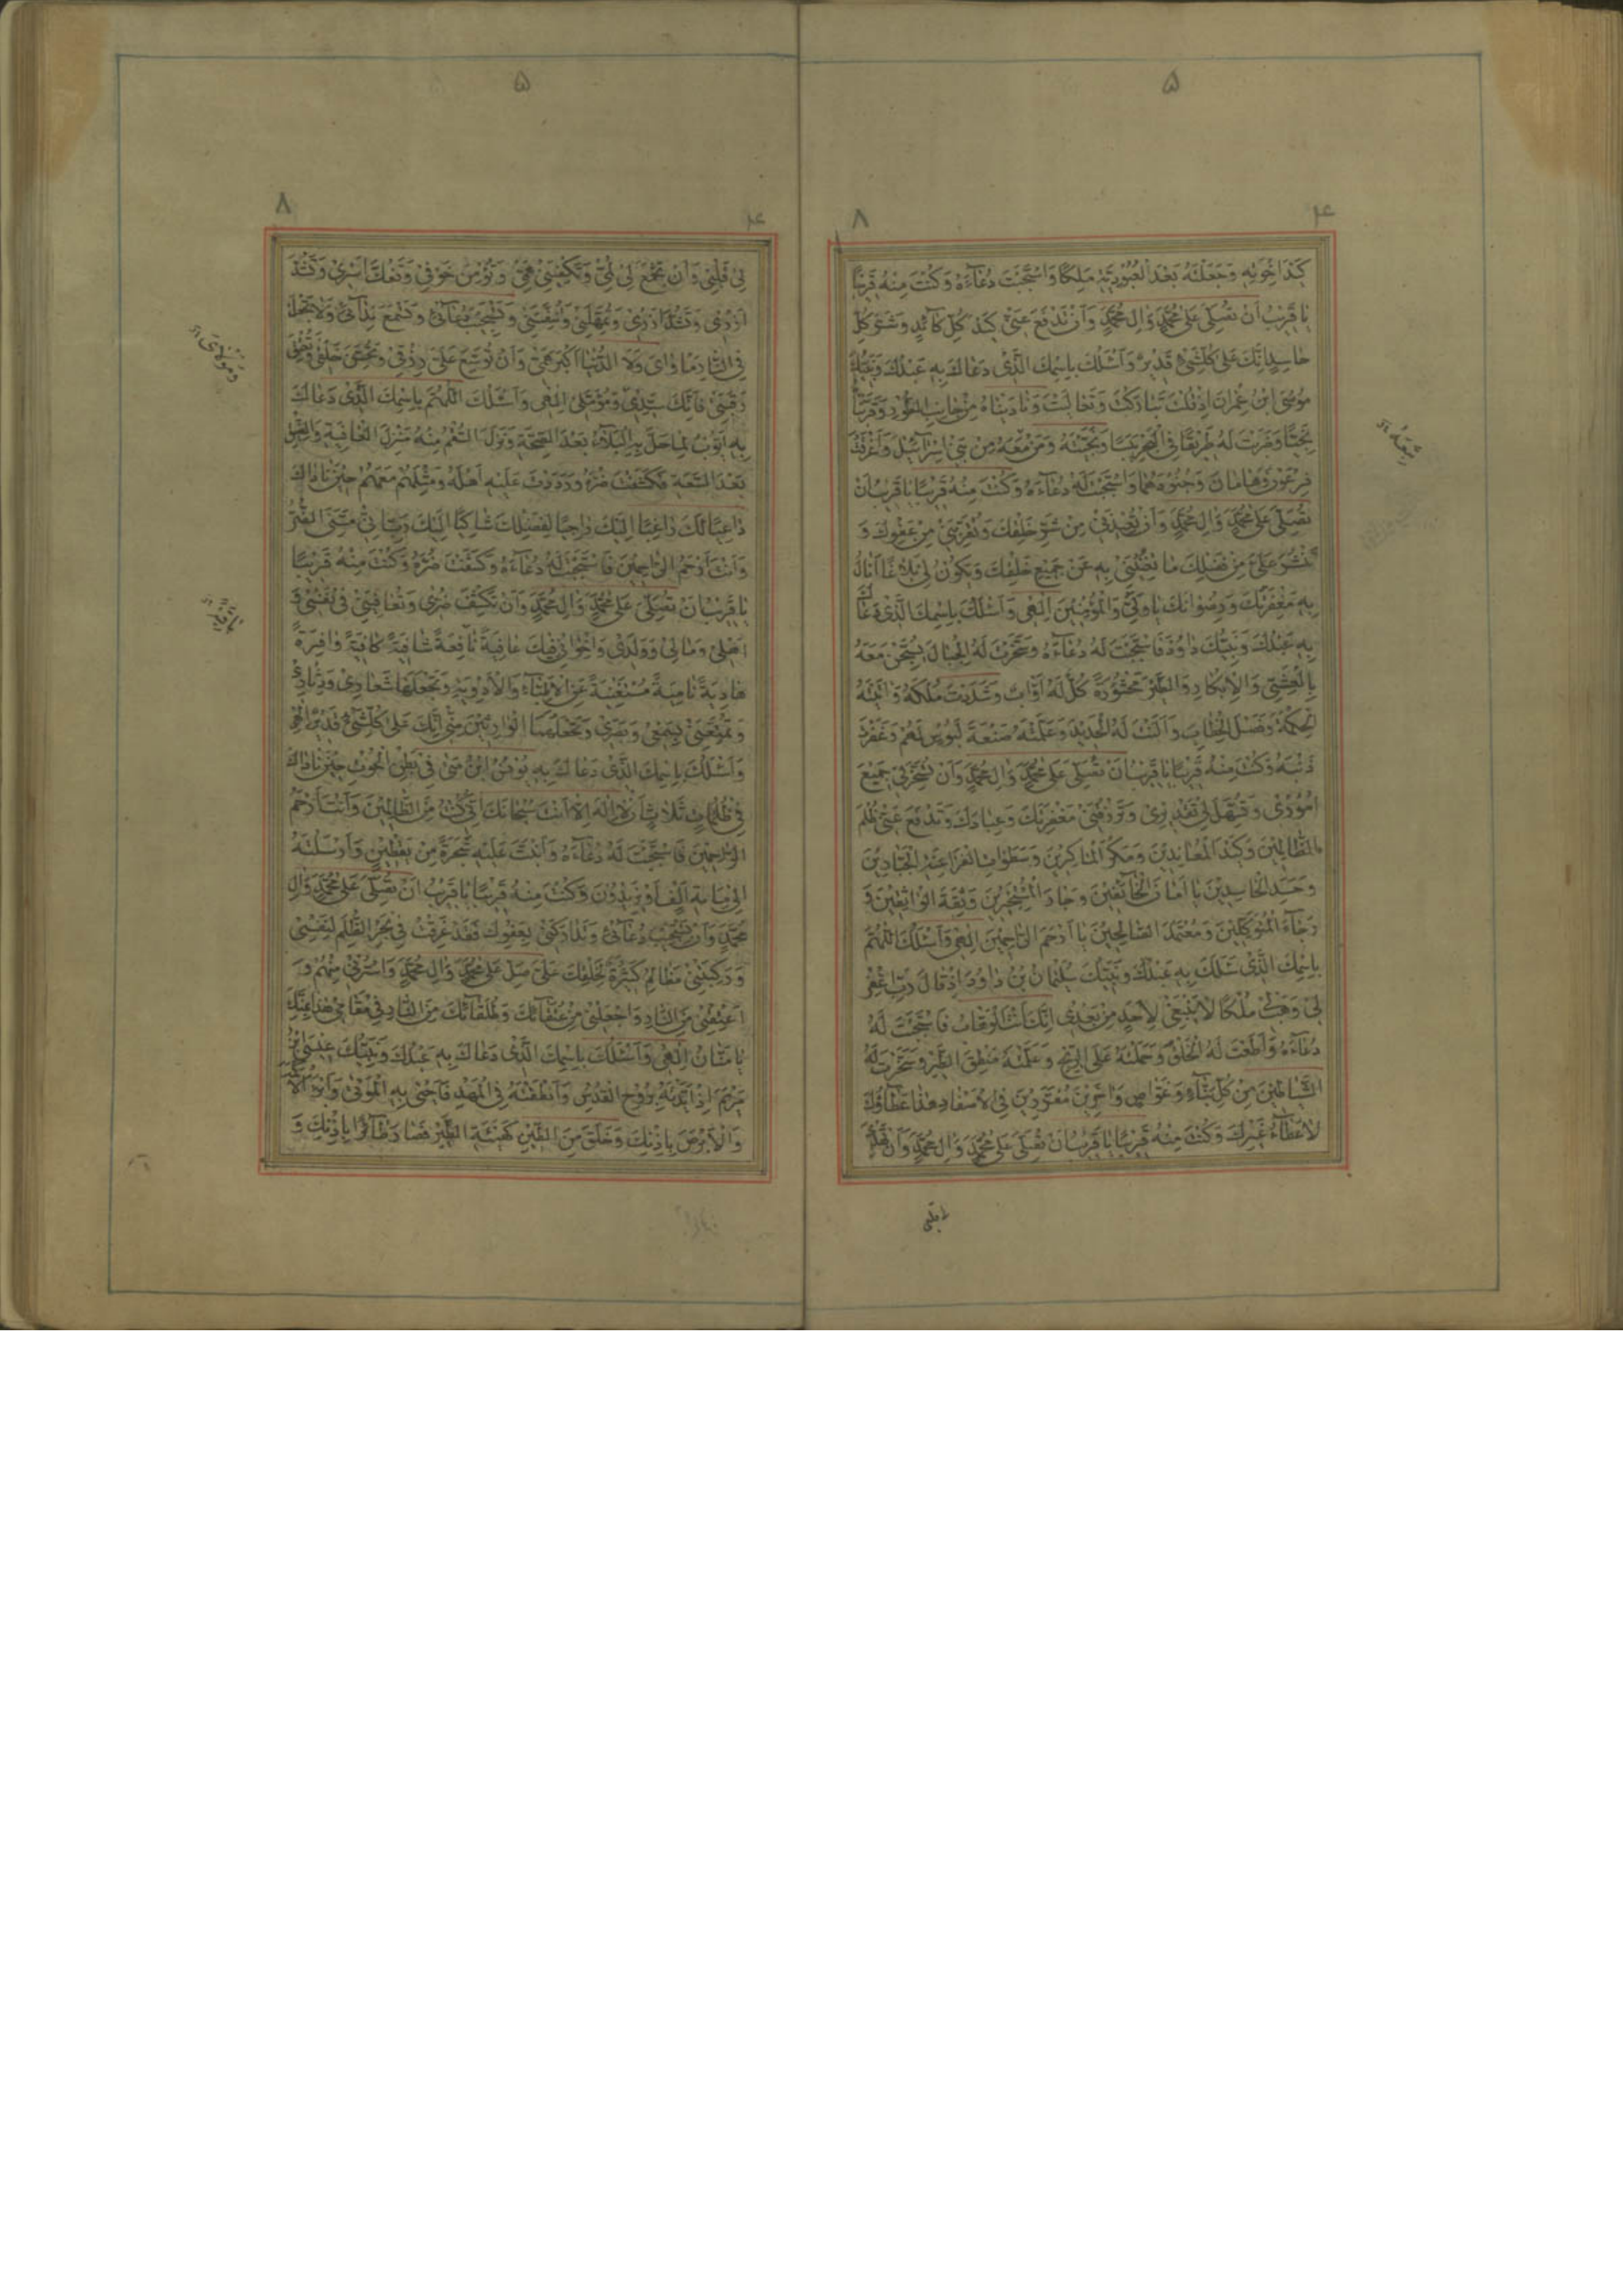 ۵
۸
۴
كَيْدَ اِخْوَتِهِ وَجَعَلْتَهُ بَعْدَ الْعُبُودِيَّةِ مَلِكًا وَاسْتَجَبْتَ دُعَاءَهُ وَكُنْتَ مِنْهُ قَرِيبًا
يَا قَرِيبُ اَنْ تُصَلِّىَ عَلىٰ مُحَمَّدٍ وَالِ مُحَمَّدٍ وَاَنْ تَدْفَعَ عَنّىٖ كَيْدَ كُلِّ كَائِدٍ وَشَرَّ كُلِّ
حَاسِدٍ اِنَّكَ عَلىٰ كُلِّشَىْءٍ قَدِيرٌ وَاَسْئَلُكَ بِاسْمِكَ الَّذى دَعَاكَ بِهِ عَبْدُكَ وَنَبِيُّكَ
مُوسَى ابْنُ عِمْرَانَ اِذْ قُلْتَ تَبَارَكْتَ وَتَعَالَيْتَ وَنَادَيْنَاهُ مِنْ جَانِبِ الطُّورِ وَقَرَّبْنَاهُ
نَجِيًّا وَضَرَبْتَ لَهُ طَرِيقًا فِى الْبَحْرِ يَبَسًا وَنَجَّيْتَهُ وَمَنْ مَعَهُ مِنْ بَنى اِسْرَائِيلَ وَاَغْرَقْتَ
فِرْعَوْنَ وَهَامَانَ وَجُنُودَهُمَا وَاسْتَجَبْتَ لَهُ دُعَاءَهُ وَكُنْتَ مِنْهُ قَرِيبًا يَا قَرِيبُ اَنْ
تُصَلِّىَ عَلىٰ مُحَمَّدٍ وَالِ مُحَمَّدٍ وَاَنْ تُعِيذَنى مِنْ شَرِّ خَلْقِكَ وَتُقَرِّبَنى مِنْ عَفْوِكَ وَ
تَنْشُرَ عَلَىَّ مِنْ فَضْلِكَ مَا تُغْنِينى بِهِ عَنْ جَمِيعِ خَلْقِكَ وَيَكُونُ لى بَلَاغًا اَنَالُ
بِهِ مَغْفِرَتَكَ وَرِضْوَانَكَ يَا وَلِيّى وَالْمُؤْمِنِينَ اِلٰهى وَاَسْئَلُكَ بِاسْمِكَ الَّذى دَعَاكَ
بِهِ عَبْدُكَ وَنَبِيُّكَ دَاوُدَ فَاسْتَجَبْتَ لَهُ دُعَاءَهُ وَسَخَّرْتَ لَهُ الْجِبَالَ يُسَبِّحْنَ مَعَهُ
بِالْعَشِىِّ وَالْاِبْكَارِ وَالطَّيْرَ مَحْشُورَةً كُلٌّ لَهُ اَوَّابٌ وَشَدَدْتَ مُلْكَهُ وَاتَيْتَهُ
الْحِكْمَةَ وَفَصْلَ الْخِطَابِ وَاَلَنْتَ لَهُ الْحَدِيدَ وَعَلَّمْتَهُ صَنْعَةَ لَبُوسٍ لَهُمْ وَغَفَرْتَ
ذَنْبَهُ وَكُنْتَ مِنْهُ قَرِيبًا يَا قَرِيبُ اَنْ تُصَلِّىَ عَلىٰ مُحَمَّدٍ وَالِ مُحَمَّدٍ وَاَنْ تُسَخِّرَ لى جَمِيعَ
اُمُورى وَتُسَهِّلَ لى تَقْدِيرى وَتَرْزُقَنى مَغْفِرَتَكَ وَعِبَادَتَكَ وَتَدْفَعَ عَنّى ظُلْمَ
الظَّالِمِينَ وَكَيْدَ الْمُعَانِدِينَ وَمَكْرَ الْمَاكِرِينَ وَسَطَوَاتِ الْفَرَاعِنَةِ الْجَبَّارِينَ
وَحَسَدَ الْحَاسِدِينَ يَا اَمَانَ الْخَائِفِينَ وَجَارَ الْمُسْتَجِيرِينَ وَثِقَةَ الْوَاثِقِينَ وَ
رَجَاءَ الْمُتَوَكِّلِينَ وَمُعْتَمَدَ الصَّالِحِينَ يَا اَرْحَمَ الرَّاحِمِينَ اِلٰهى وَاَسْئَلُكَ اللّٰهُمَّ
بِاسْمِكَ الَّذى سَئَلَكَ بِهِ عَبْدُكَ وَنَبِيُّكَ سُلَيْمَانُ بْنُ دَاوُدَ اِذْ قَالَ رَبِّ اغْفِرْ
لى وَهَبْ لى مُلْكًا لَا يَنْبَغى لِاَحَدٍ مِنْ بَعْدى اِنَّكَ اَنْتَ الْوَهَّابُ فَاسْتَجَبْتَ لَهُ
دُعَاءَهُ وَاَطَعْتَ لَهُ الْخَلْقَ وَحَمَلْتَهُ عَلَى الرِّيحِ وَعَلَّمْتَهُ مَنْطِقَ الطَّيْرِ وَسَخَّرْتَ لَهُ
الشَّيَاطِينَ مِنْ كُلِّ بَنَّاءٍ وَغَوَّاصٍ وَاخَرِينَ مُقَرَّنِينَ فِى الْاَصْفَادِ هٰذَا عَطَاؤُكَ
لَا عَطَاءُ غَيْرِكَ وَكُنْتَ مِنْهُ قَرِيبًا يَا قَرِيبُ اَنْ تُصَلِّىَ عَلىٰ مُحَمَّدٍ وَالِ مُحَمَّدٍ وَاَنْ
۵
۸
۴
لى قَلْبى وَاَنْ تَجْمَعَ لى لُبّى وَتَكْفِيَنى هَمّى وَتُؤْمِنَ خَوْفى وَتَفُكَّ اَسْرى وَتَشُدَّ
اَزْرى وَتُمْهِلَنى وَتُنَفِّسَنى وَتَسْتَجِيبَ دُعَائى وَتَسْمَعَ نِدَائى وَلَا تَجْعَلْ
فِى النَّارِ مَاْوَاىَ وَلَا الدُّنْيَا اَكْبَرَ هَمّى وَاَنْ تُوَسِّعَ عَلَىَّ رِزْقى وَتُحَسِّنَ خَلْقى وَتُعْتِقَ
رَقَبَتى فَاِنَّكَ سَيِّدى وَمُؤَمَّلى اِلٰهى وَاَسْئَلُكَ اللّٰهُمَّ بِاسْمِكَ الَّذى دَعَاكَ
بِهِ اَيُّوبُ لَمَّا حَلَّ بِهِ الْبَلَاءُ بَعْدَ الصِّحَّةِ وَنَزَلَ السُّقْمُ مِنْهُ مَنْزِلَ الْعَافِيَةِ وَالضِّيقُ
بَعْدَ السَّعَةِ فَكَشَفْتَ ضُرَّهُ وَرَدَدْتَ عَلَيْهِ اَهْلَهُ وَمِثْلَهُمْ مَعَهُمْ حِينَ نَادَاكَ
دَاعِيًا لَكَ رَاغِبًا اِلَيْكَ رَاجِيًا لِفَضْلِكَ شَاكِيًا اِلَيْكَ رَبِّ اِنّى مَسَّنِىَ الضُّرُّ
وَاَنْتَ اَرْحَمُ الرَّاحِمِينَ فَاسْتَجَبْتَ لَهُ دُعَاءَهُ وَكَشَفْتَ ضُرَّهُ وَكُنْتَ مِنْهُ قَرِيبًا
يَا قَرِيبُ اَنْ تُصَلِّىَ عَلىٰ مُحَمَّدٍ وَالِ مُحَمَّدٍ وَاَنْ تَكْشِفَ ضُرّى وَتُعَافِيَنى فى نَفْسى وَ
اَهْلى وَمَالى وَوَلَدى وَاِخْوَانى فِيكَ عَافِيَةً نَافِعَةً شَافِيَةً كَافِيَةً وَافِرَةً
هَادِيَةً نَامِيَةً مُسْتَغْنِيَةً عَنِ الْاَطِبَّاءِ وَالْاَدْوِيَةِ وَتَجْعَلَهَا شِعَارى وَدِثَارى
وَتُمَتِّعَنى بِسَمْعى وَبَصَرى وَتَجْعَلَهُمَا الْوَارِثَيْنِ مِنّى اِنَّكَ عَلىٰ كُلِّشَىْءٍ قَدِيرٌ اِلٰهى
وَاَسْئَلُكَ بِاسْمِكَ الَّذى دَعَاكَ بِهِ يُونُسُ ابْنُ مَتّى فى بَطْنِ الْحُوتِ حِينَ نَادَاكَ
فى ظُلُمَاتٍ ثَلَاثٍ اَنْ لَا اِلٰهَ اِلَّا اَنْتَ سُبْحَانَكَ اِنّى كُنْتُ مِنَ الظَّالِمِينَ وَاَنْتَ اَرْحَمُ
الرَّاحِمِينَ فَاسْتَجَبْتَ لَهُ دُعَاءَهُ وَاَنْبَتَّ عَلَيْهِ شَجَرَةً مِنْ يَقْطِينٍ وَاَرْسَلْتَهُ
اِلىٰ مِائَةِ اَلْفٍ اَوْ يَزِيدُونَ وَكُنْتَ مِنْهُ قَرِيبًا يَا قَرِيبُ اَنْ تُصَلِّىَ عَلىٰ مُحَمَّدٍ وَالِ
مُحَمَّدٍ وَاَنْ تَسْتَجِيبَ دُعَائى وَتَدَارَكَنى بِعَفْوِكَ فَقَدْ غَرِقْتُ فى بَحْرِ الظُّلْمِ لِنَفْسى
وَرَكِبَتْنى مَظَالِمُ كَثِيرَةٌ لِخَلْقِكَ عَلَىَّ صَلِّ عَلىٰ مُحَمَّدٍ وَالِ مُحَمَّدٍ وَاسْتُرْنى مِنْهُمْ وَ
اَعْتِقْنى مِنَ النَّارِ وَاجْعَلْنى مِنْ عُتَقَائِكَ وَطُلَقَائِكَ مِنَ النَّارِ فى مَقَامى هٰذَا بِمَنِّكَ
يَا مَنَّانُ اِلٰهى وَاَسْئَلُكَ بِاسْمِكَ الَّذى دَعَاكَ بِهِ عَبْدُكَ وَنَبِيُّكَ عِيسَى بْنُ
مَرْيَمَ اِذْ اَيَّدْتَهُ بِرُوحِ الْقُدُسِ وَاَنْطَقْتَهُ فِى الْمَهْدِ فَاَحْيىٰ بِهِ الْمَوْتىٰ وَاَبْرَءَ الْاَكْمَهَ
وَالْاَبْرَصَ بِاِذْنِكَ وَخَلَقَ مِنَ الطِّينِ كَهَيْئَةِ الطَّيْرِ فَصَارَ طَائِرًا بِاِذْنِكَ وَ
وَمَوْلَاىَ